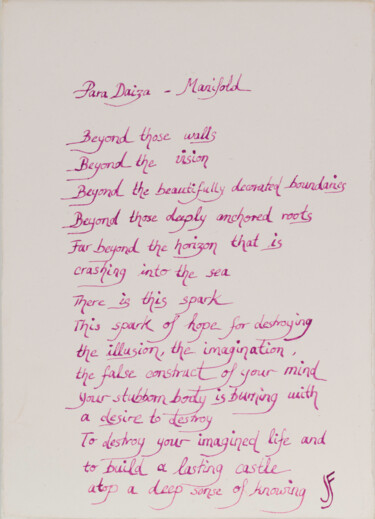 Para Daiza - Manifold
Beyond those walls
Beyond the vision
Beyond the beautifully decorated boundaries
Beyond those deeply anchored roots
Far beyond the horizon that is
crashing into the sea
There is this spark
This spark of hope for destroying
the illusion, the imagination,
the false construct of your mind
your stubborn body is burning with
a desire to destroy
To destroy your imagined life and
to build a lasting castle
atop a deep sense of knowing